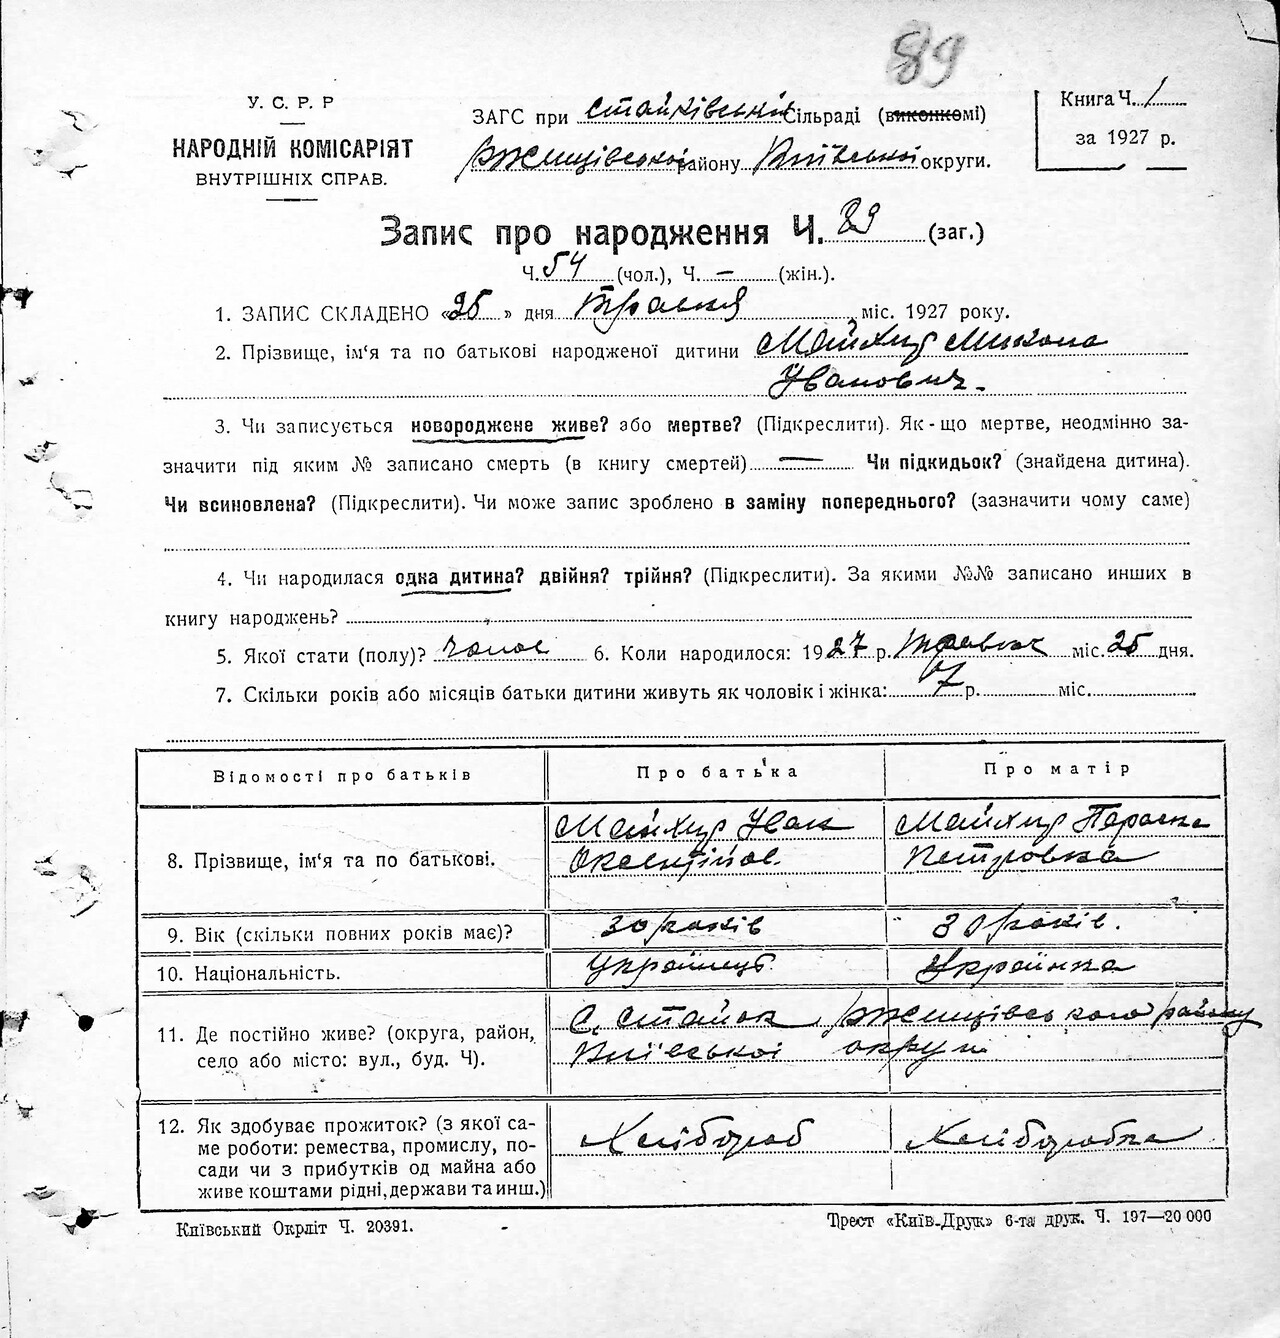 89
У. С. Р. Р
НАРОДНІЙ КОМІСАРІЯТ
ВНУТРІШНІХ СПРАВ.
ЗАГС при Стайківській Сільраді (виконкомі)
Ржищівського району Київської округи.
Книга Ч. 1
за 1927 р.
Запис про народження Ч. 89 (заг.)
Ч. 54 (чол.), Ч. — (жін.).
1. ЗАПИС СКЛАДЕНО «25» дня Травня міс. 1927 року.
2. Прізвище, ім'я та по батькові народженої дитини Майхир Микола
Іванович.
3. Чи записується новороджене живе? або мертве? (Підкреслити). Як-що мертве, неодмінно за-
значити під яким № записано смерть (в книгу смертей) — Чи підкидьок? (знайдена дитина).
Чи всиновлена? (Підкреслити). Чи може запис зроблено в заміну попереднього? (зазначити чому саме)
4. Чи народилася одна дитина? двійня? трійня? (Підкреслити). За якими №№ записано инших в
книгу народжень?
5. Якої стати (полу)? чолов 6. Коли народилося: 1927 р. Травня міс. 25 дня.
7. Скільки років або місяців батьки дитини живуть як чоловік і жінка: 7 р. міс.
Відомості про батьків Про батька Про матір
8. Прізвище, ім'я та по батькові. Майхир Іван Майхир Параска
Оксентійов. Петровна
9. Вік (скільки повних років має)? 30 років 30 років.
10. Національність. Українець Українка
11. Де постійно живе? (округа, район, село або місто: вул., буд. Ч). С. Стайок Ржищівського району
Київської округи
12. Як здобуває прожиток? (з якої са-
ме роботи: ремества, промислу, по-
сади чи з прибутків од майна або
живе коштами рідні, держави та инш.) Хлібороб Хліборобка
Київський Окрліт Ч. 20391.
Трест «Київ-Друк» 6-та друк. Ч. 197—20 000